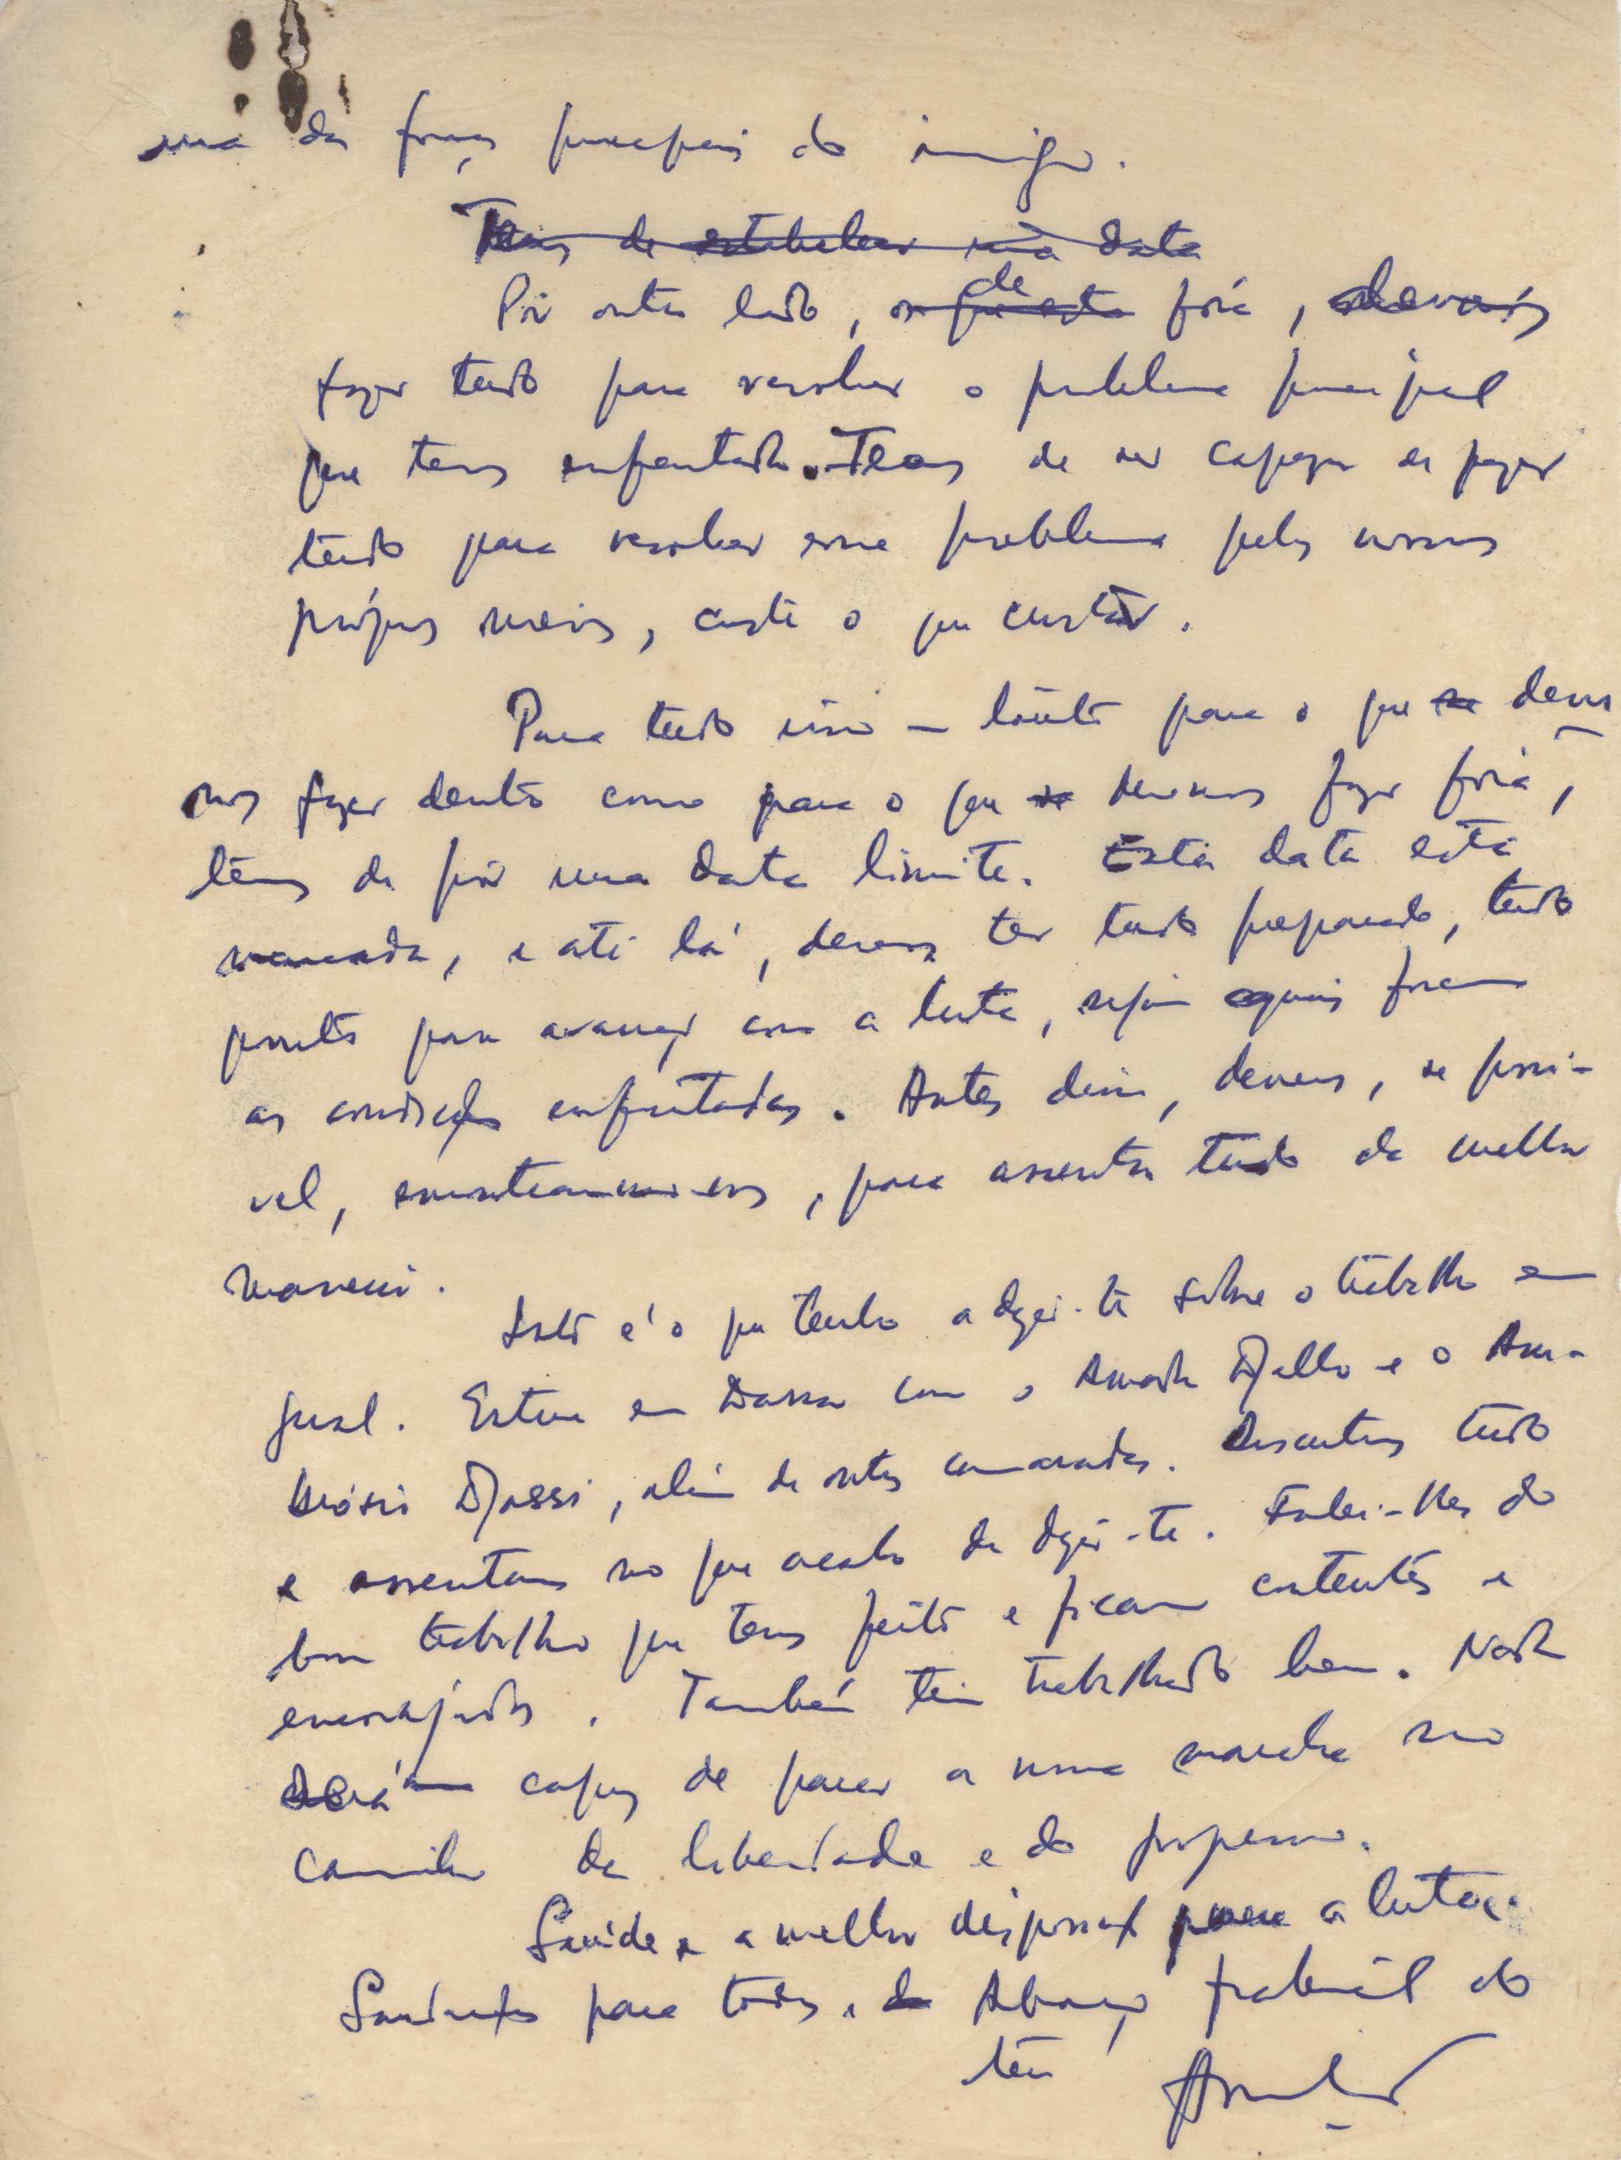 uma das forças principais do inimigo.
Temos de estabelecer uma data
Por outro lado, os que está de fora, devemos
fazer tudo para resolver o problema principal
que temos enfrentado. Temos de ser capazes de fazer
tudo para resolver esse problema pelos nossos
próprios meios, custe o que custar.
Para tudo isso — tanto para o que se deve-
mos fazer dentro como para o que se devemos fazer fora,
temos de pôr uma data limite. Esta data está
marcada, e até lá, devemos ter tudo preparado, tudo
pronto para avançar com a luta, sejam quais forem
as condições enfrentadas. Antes disso, devemos, se possí-
vel, encontrarmo-nos, para assentar tudo da melhor
maneira.
Isto é o que tenho a dizer-te sobre o trabalho em
geral. Estive em com o Amada Djallo e o Am-
brósio Djassi, além de outros camaradas. Discutimos tudo
e assentamos no que acabo de dizer-te. Falei-lhes do
bom trabalho que tens feito e ficaram contentes e
encorajados. Também têm trabalhado bem. Nada
será capaz de parar a nossa marcha no
caminho da liberdade e do progresso.
Saúde e a melhor disposição para a luta.
Saudações para todos. Abraço fraternal do
teu